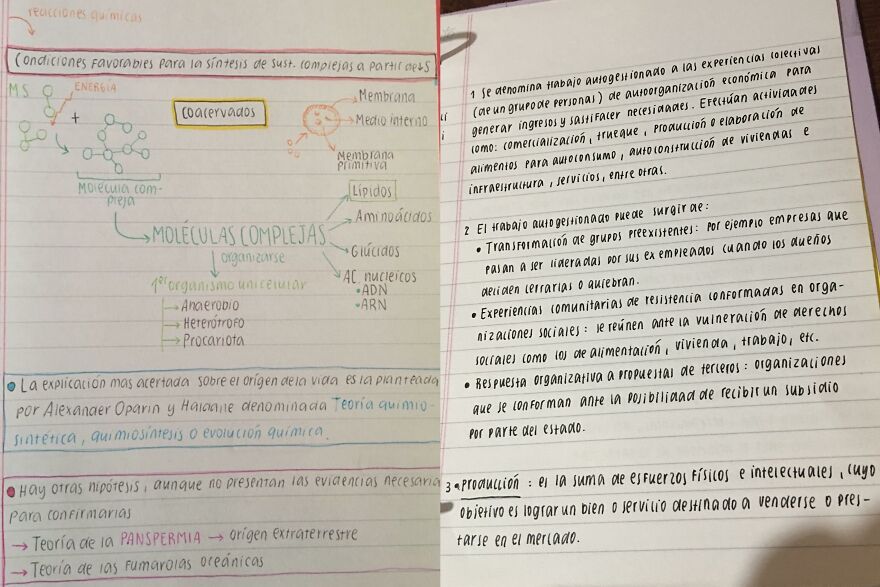 reacciones químicas
Condiciones Favorables para la síntesis de sust. complejas a partir de
MS
ENERGÍA
+
Molécula com-
pleja
coacervados
Membrana
Medio interno
Membrana
primitiva
MOLÉCULAS COMPLEJAS
Lípidos
Aminoácidos
Glúcidos
AC. nucleicos
• ADN
• ARN
organizarse
1er organismo unicelular
→ Anaerobio
→ Heterótrofo
→ Procariota
• La explicación mas acertada sobre el origen de la vida es la planteada
por Alexander Oparin y Haldane denominada Teoría quimio-
sintética, quimiosíntesis o evolución química.
• Hay otras hipótesis, aunque no presentan las evidencias necesaria
para confirmarlas
→ Teoría de la PANSPERMIA → origen extraterrestre
→ Teoría de las Fumarolas oceánicas
1 Se denomina trabajo autogestionado a las experiencias colectivas
(de un grupo de personas) de autoorganización económica para
generar ingresos y sastifacer necesidades. Efectúan actividades
como: comercialización, trueque, producción o elaboración de
alimentos para autoconsumo, autoconstrucción de viviendas e
infraestructura, servicios, entre otras.
2 El trabajo autogestionado puede surgir de:
• Transformación de grupos preexistentes: por ejemplo empresas que
pasan a ser lideradas por sus ex empleados cuando los dueños
deciden cerrarlas o quiebran.
• Experiencias comunitarias de resistencia conformadas en orga-
nizaciones sociales: se reúnen ante la vulneración de derechos
sociales como los de alimentación, vivienda, trabajo, etc.
• Respuesta organizativa a propuestas de terceros: organizaciones
que se conforman ante la posibilidad de recibir un subsidio
por parte del estado.
3 • producción: es la suma de esfuerzos físicos e intelectuales, cuyo
objetivo es lograr un bien o servicio destinado a venderse o pres-
tarse en el mercado.